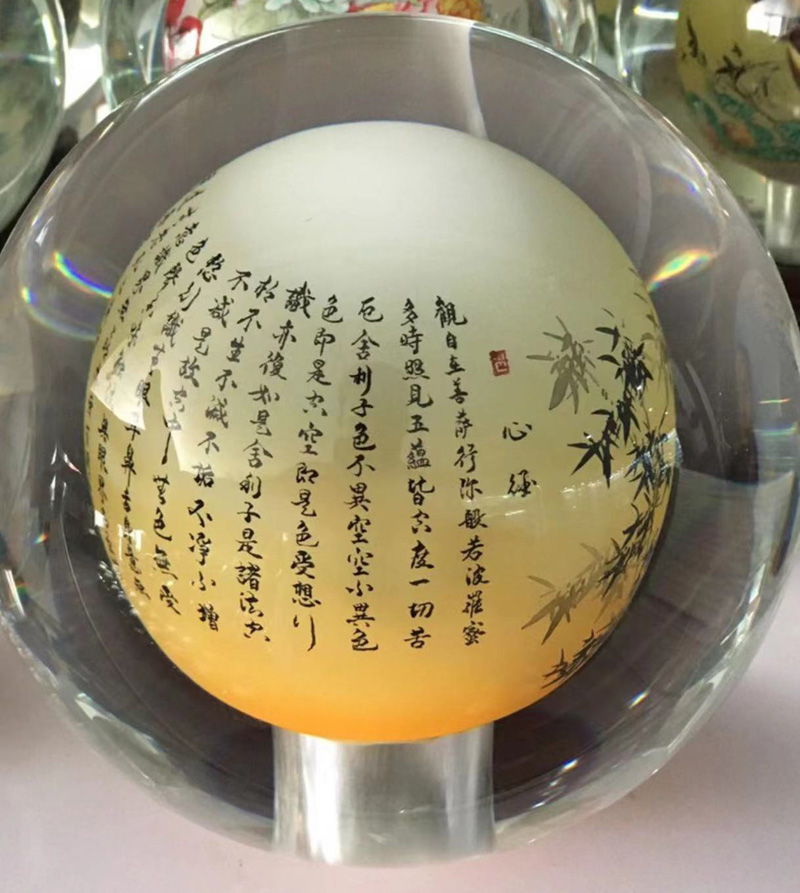 心經
觀自在菩薩行深般若波羅蜜
多時照見五蘊皆空度一切苦
厄舍利子色不異空空不異色
色即是空空即是色受想行
識亦復如是舍利子是諸法空
相不生不滅不垢不淨不增
不減是故空中無色無受
想行識無眼耳鼻舌身意無